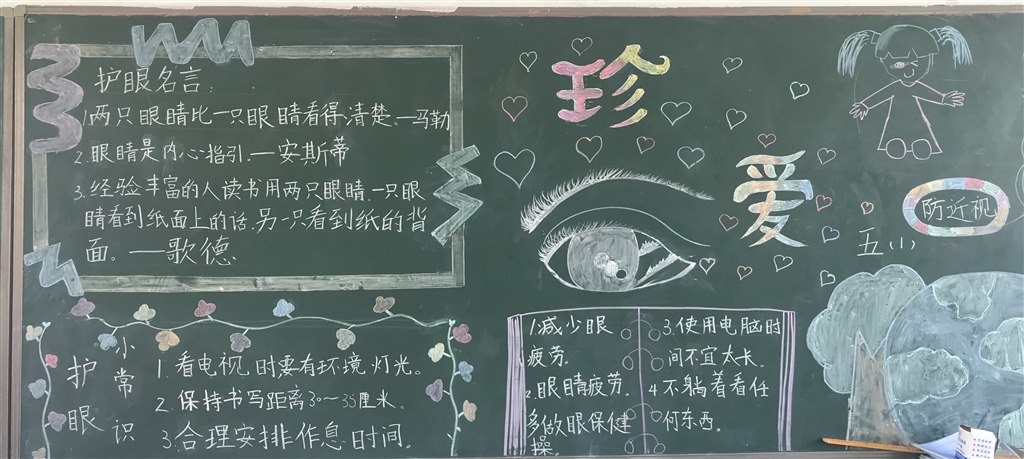 护眼名言:
1两只眼睛比一只眼睛看得清楚.—马勒
2.眼睛是内心指引.—安斯蒂
3.经验丰富的人读书用两只眼睛.一只眼
睛看到纸面上的话.另一只看到纸的背
面。—歌德
护眼
小常识
1.看电视时要有环境灯光。
2.保持书写距离30~35厘米。
3.合理安排作息时间。
珍
爱
五(1)
防近视
1.减少眼
疲劳.
2.眼睛疲劳.
多做眼保健
操。
3.使用电脑时
间不宜太长。
4不躺着看任
何东西。